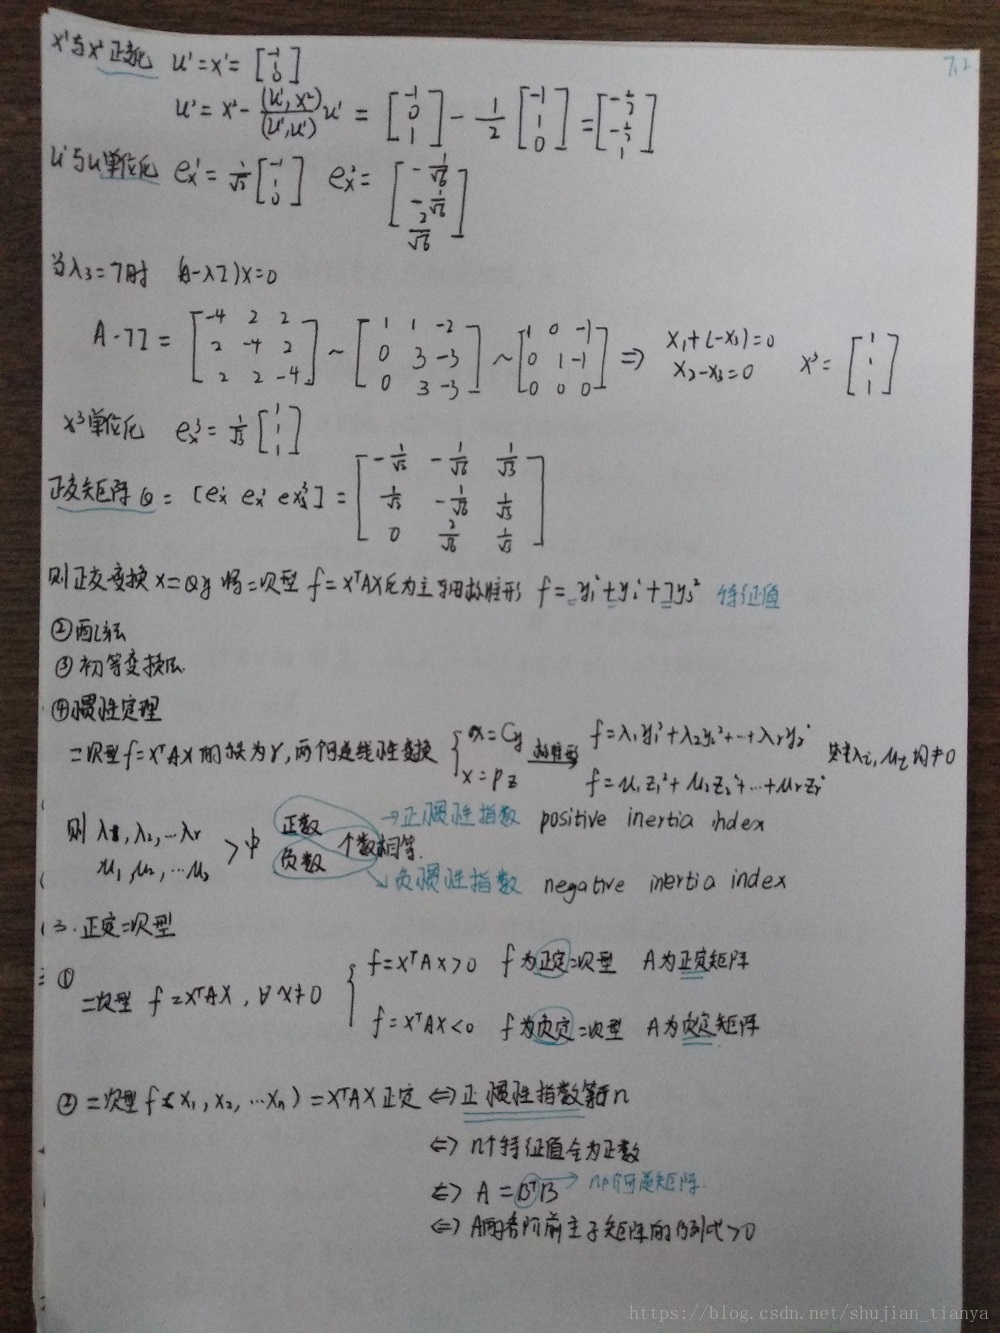 7.2
x¹与x²正交化 u¹=x¹= [-1 1 0]
u²=x²- (u¹,x²)/(u¹,u¹) u¹ = [-1 0 1] - 1/2 [-1 1 0] = [-1/2 -1/2 1]
u¹与u²单位化 e¹ₓ= 1/√2 [-1 1 0] e²ₓ= [-1/√6 -1/√6 2/√6]
当λ₃=7时 (A-λI)x=0
A-7I = [-4 2 2; 2 -4 2; 2 2 -4] ~ [1 1 -2; 0 3 -3; 0 3 -3] ~ [1 0 -1; 0 1 -1; 0 0 0] ⇒ x₁+(-x₃)=0 x₂-x₃=0 x³= [1 1 1]
x³单位化 e³ₓ= 1/√3 [1 1 1]
正交矩阵Q = [e¹ₓ e²ₓ e³ₓ] = [-1/√2 -1/√6 1/√3; 1/√2 -1/√6 1/√3; 0 2/√6 1/√3]
则正交变换 x=Qy 将二次型 f=xᵀAx化为主轴标准形 f=-y₁²+y₂²+7y₃² 特征值
②配方法
③初等变换法
④惯性定理
二次型f=xᵀAx的秩为r,两个可逆线性变换 { x=Cy x=Pz 标准形 f=λ₁y₁²+λ₂y₂²+…+λᵣyᵣ² f=μ₁z₁²+μ₂z₂²+…+μᵣzᵣ² λᵢ,μᵢ均≠0
则 λ₁,λ₂,…λᵣ μ₁,μ₂,…μᵣ >中 正数 负数 个数相等.
→正惯性指数 positive inertia index
↘负惯性指数 negative inertia index
3.正定二次型
① 二次型 f=xᵀAx,∀x≠0 { f=xᵀAx>0 f为正定二次型 A为正定矩阵
f=xᵀAx<0 f为负定二次型 A为负定矩阵
②二次型f(x₁,x₂,…xₙ)=xᵀAx正定 ⇔正惯性指数等于n
⇔ n个特征值全为正数
⇔ A=BᵀB → n阶可逆矩阵
⇔ A的各阶前主子矩阵的行列式>0
https://blog.csdn.net/shujian_tianya